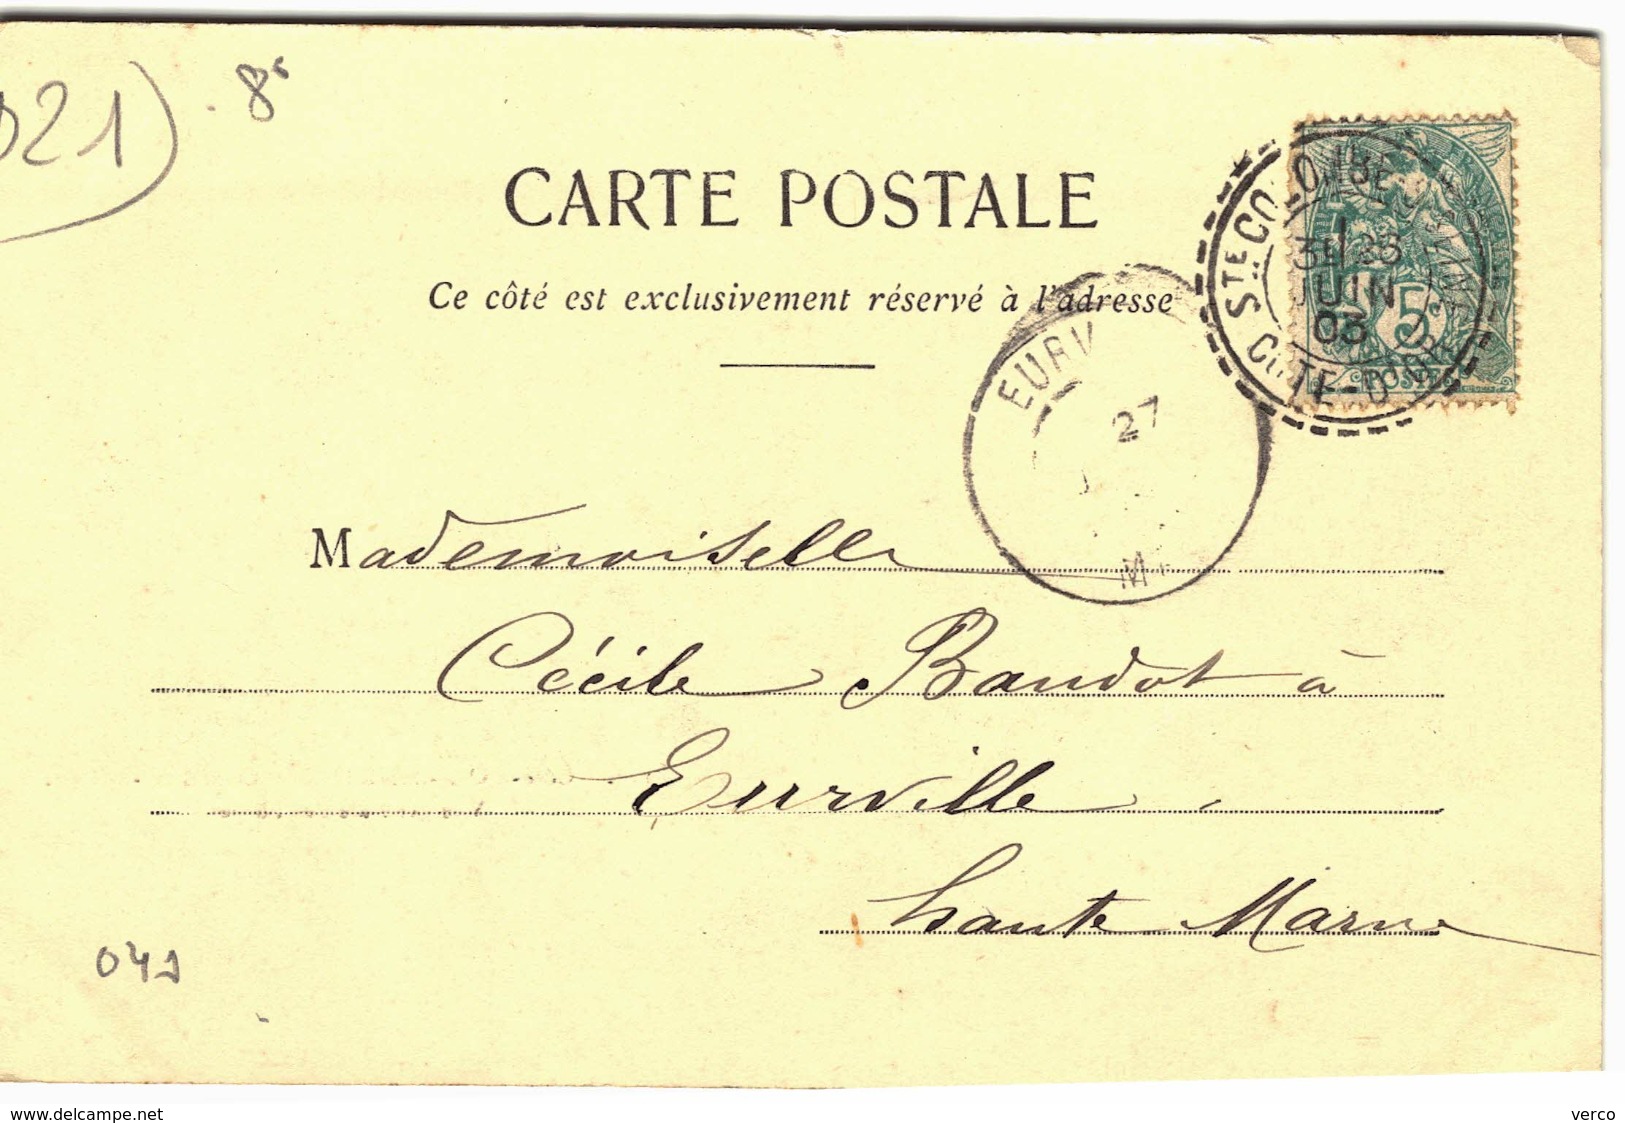 021) . 8€
CARTE POSTALE
Ce côté est exclusivement réservé à l'adresse
STE COLOMBE
26
JUIN
03
CÔTE-D'OR
5c
POSTE
EURV
27
M
Mademoiselle
Cécile Baudot à
Eurville
haute Marne
www.delcampe.net
verco